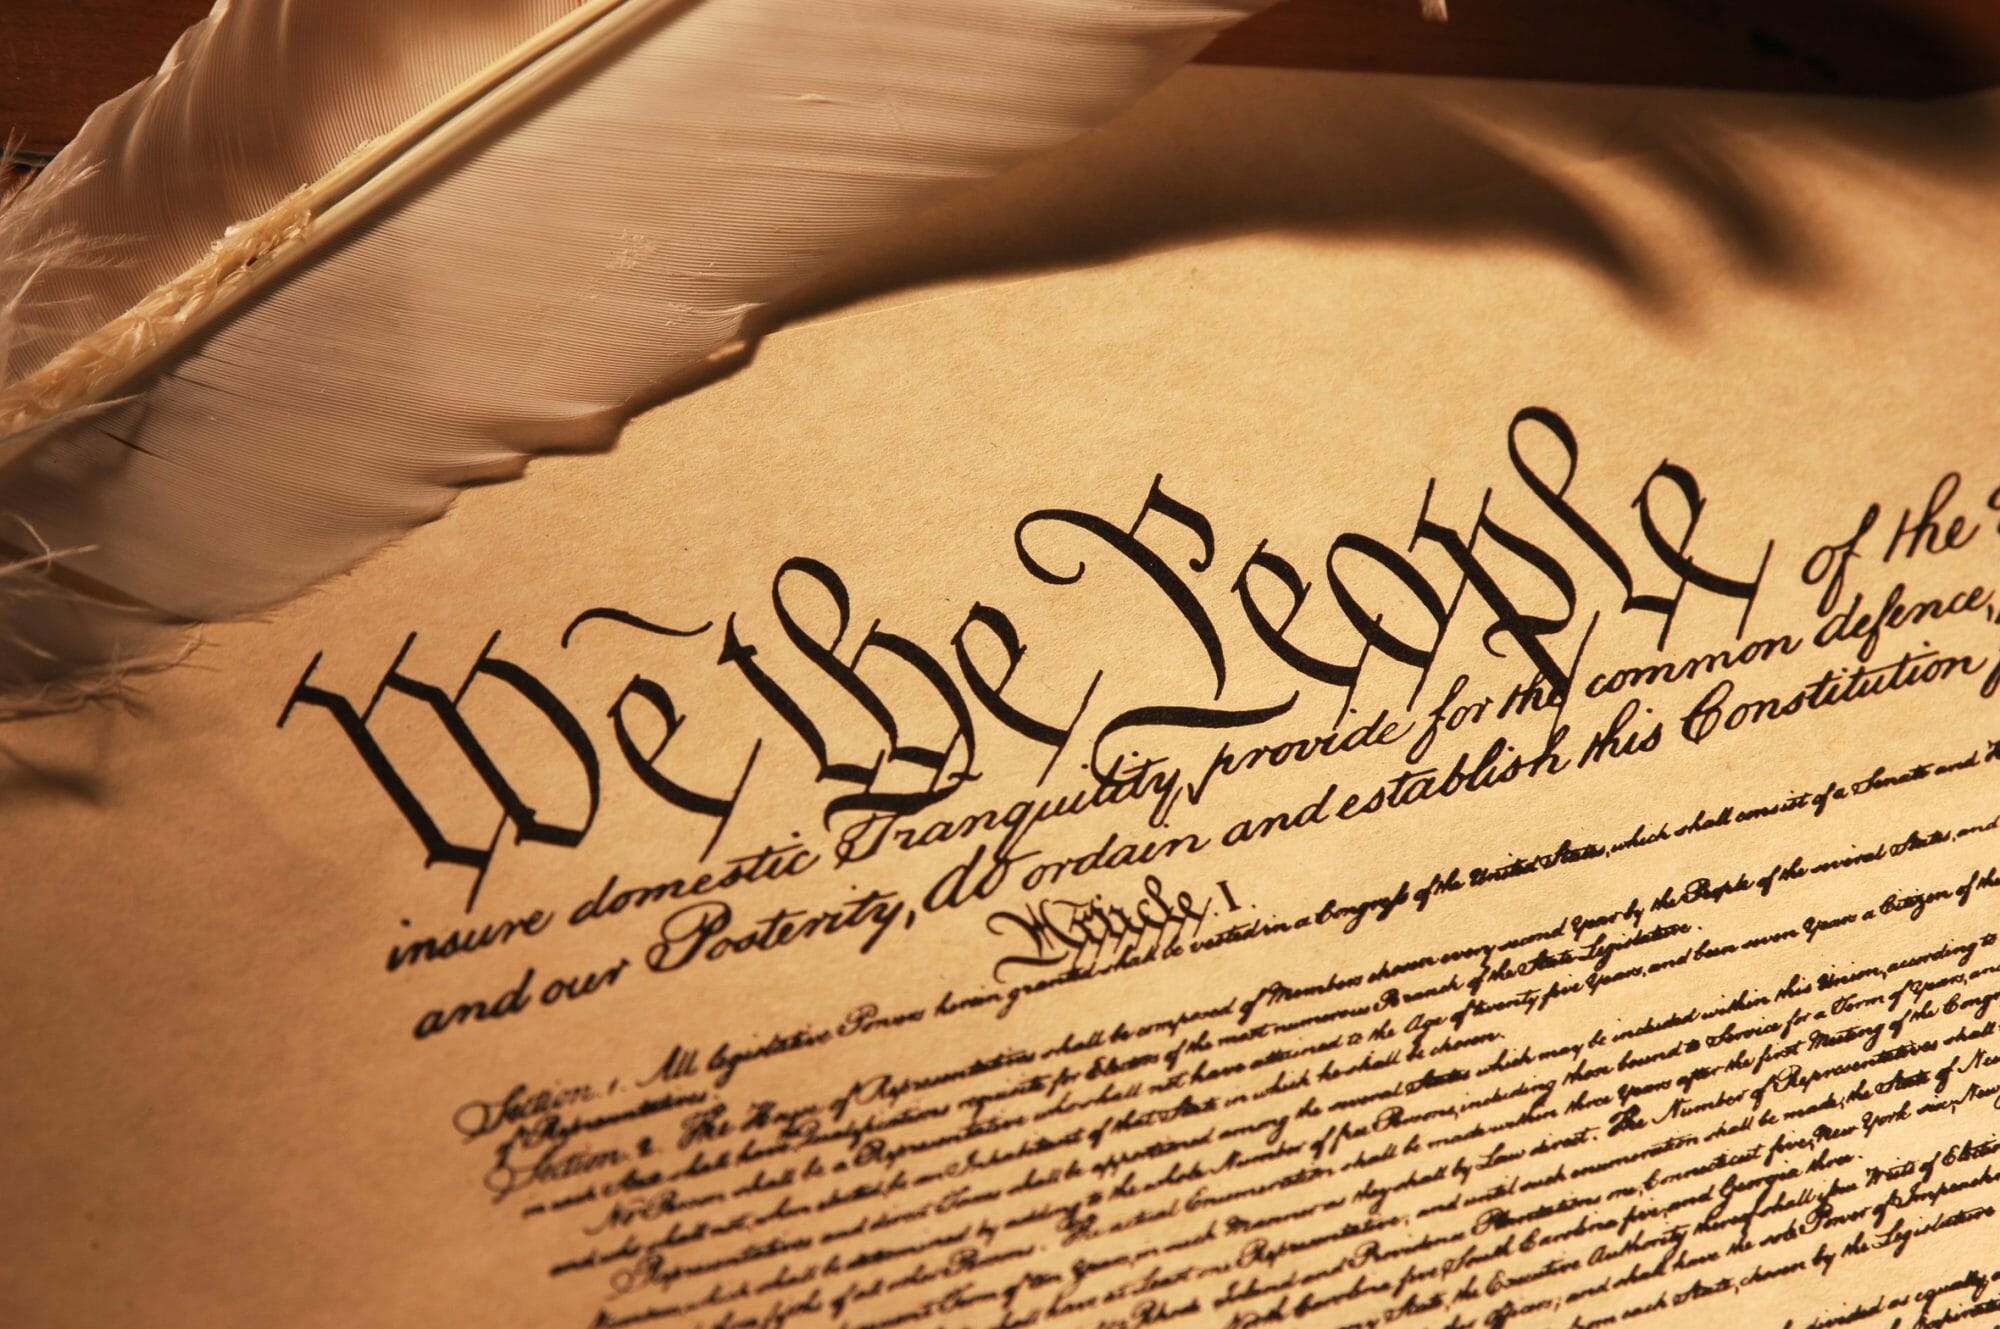 We the People of the
insure domestic Tranquility, provide for the common defence,
and our Posterity, do ordain and establish this Constitution
Article. I.
Section. 1. All legislative Powers herein granted shall be vested in a Congress of the United States, which shall consist of a Senate and
of Representatives.
Section. 2. The House of Representatives shall be composed of Members chosen every second Year by the People of the several States, and
in each State shall have Qualifications requisite for Electors of the most numerous Branch of the State Legislature.
No Person shall be a Representative who shall not have attained to the Age of twenty five Years, and been seven Years a Citizen of the
and who shall not, when elected, be an Inhabitant of that State in which he shall be chosen.
Representatives and direct Taxes shall be apportioned among the several States which may be included within this Union, according to
Numbers, which shall be determined by adding to the whole Number of free Persons, including those bound to Service for a Term of Years, and
of all other Persons. The actual Enumeration shall be made within three Years after the first Meeting of the
Term of ten Years, in such Manner as they shall by Law direct. The Number of Representatives shall
shall have at Least one Representative; and until such enumeration shall be made, the State of New
Rhode Island and Providence Plantations one, Connecticut five, New York six, New
North Carolina five, South Carolina five, and Georgia three.
State, the Executive Authority thereof shall issue Writs of
Officers; and shall have the sole Power of
from each State, chosen by the Legislature
divided as equally